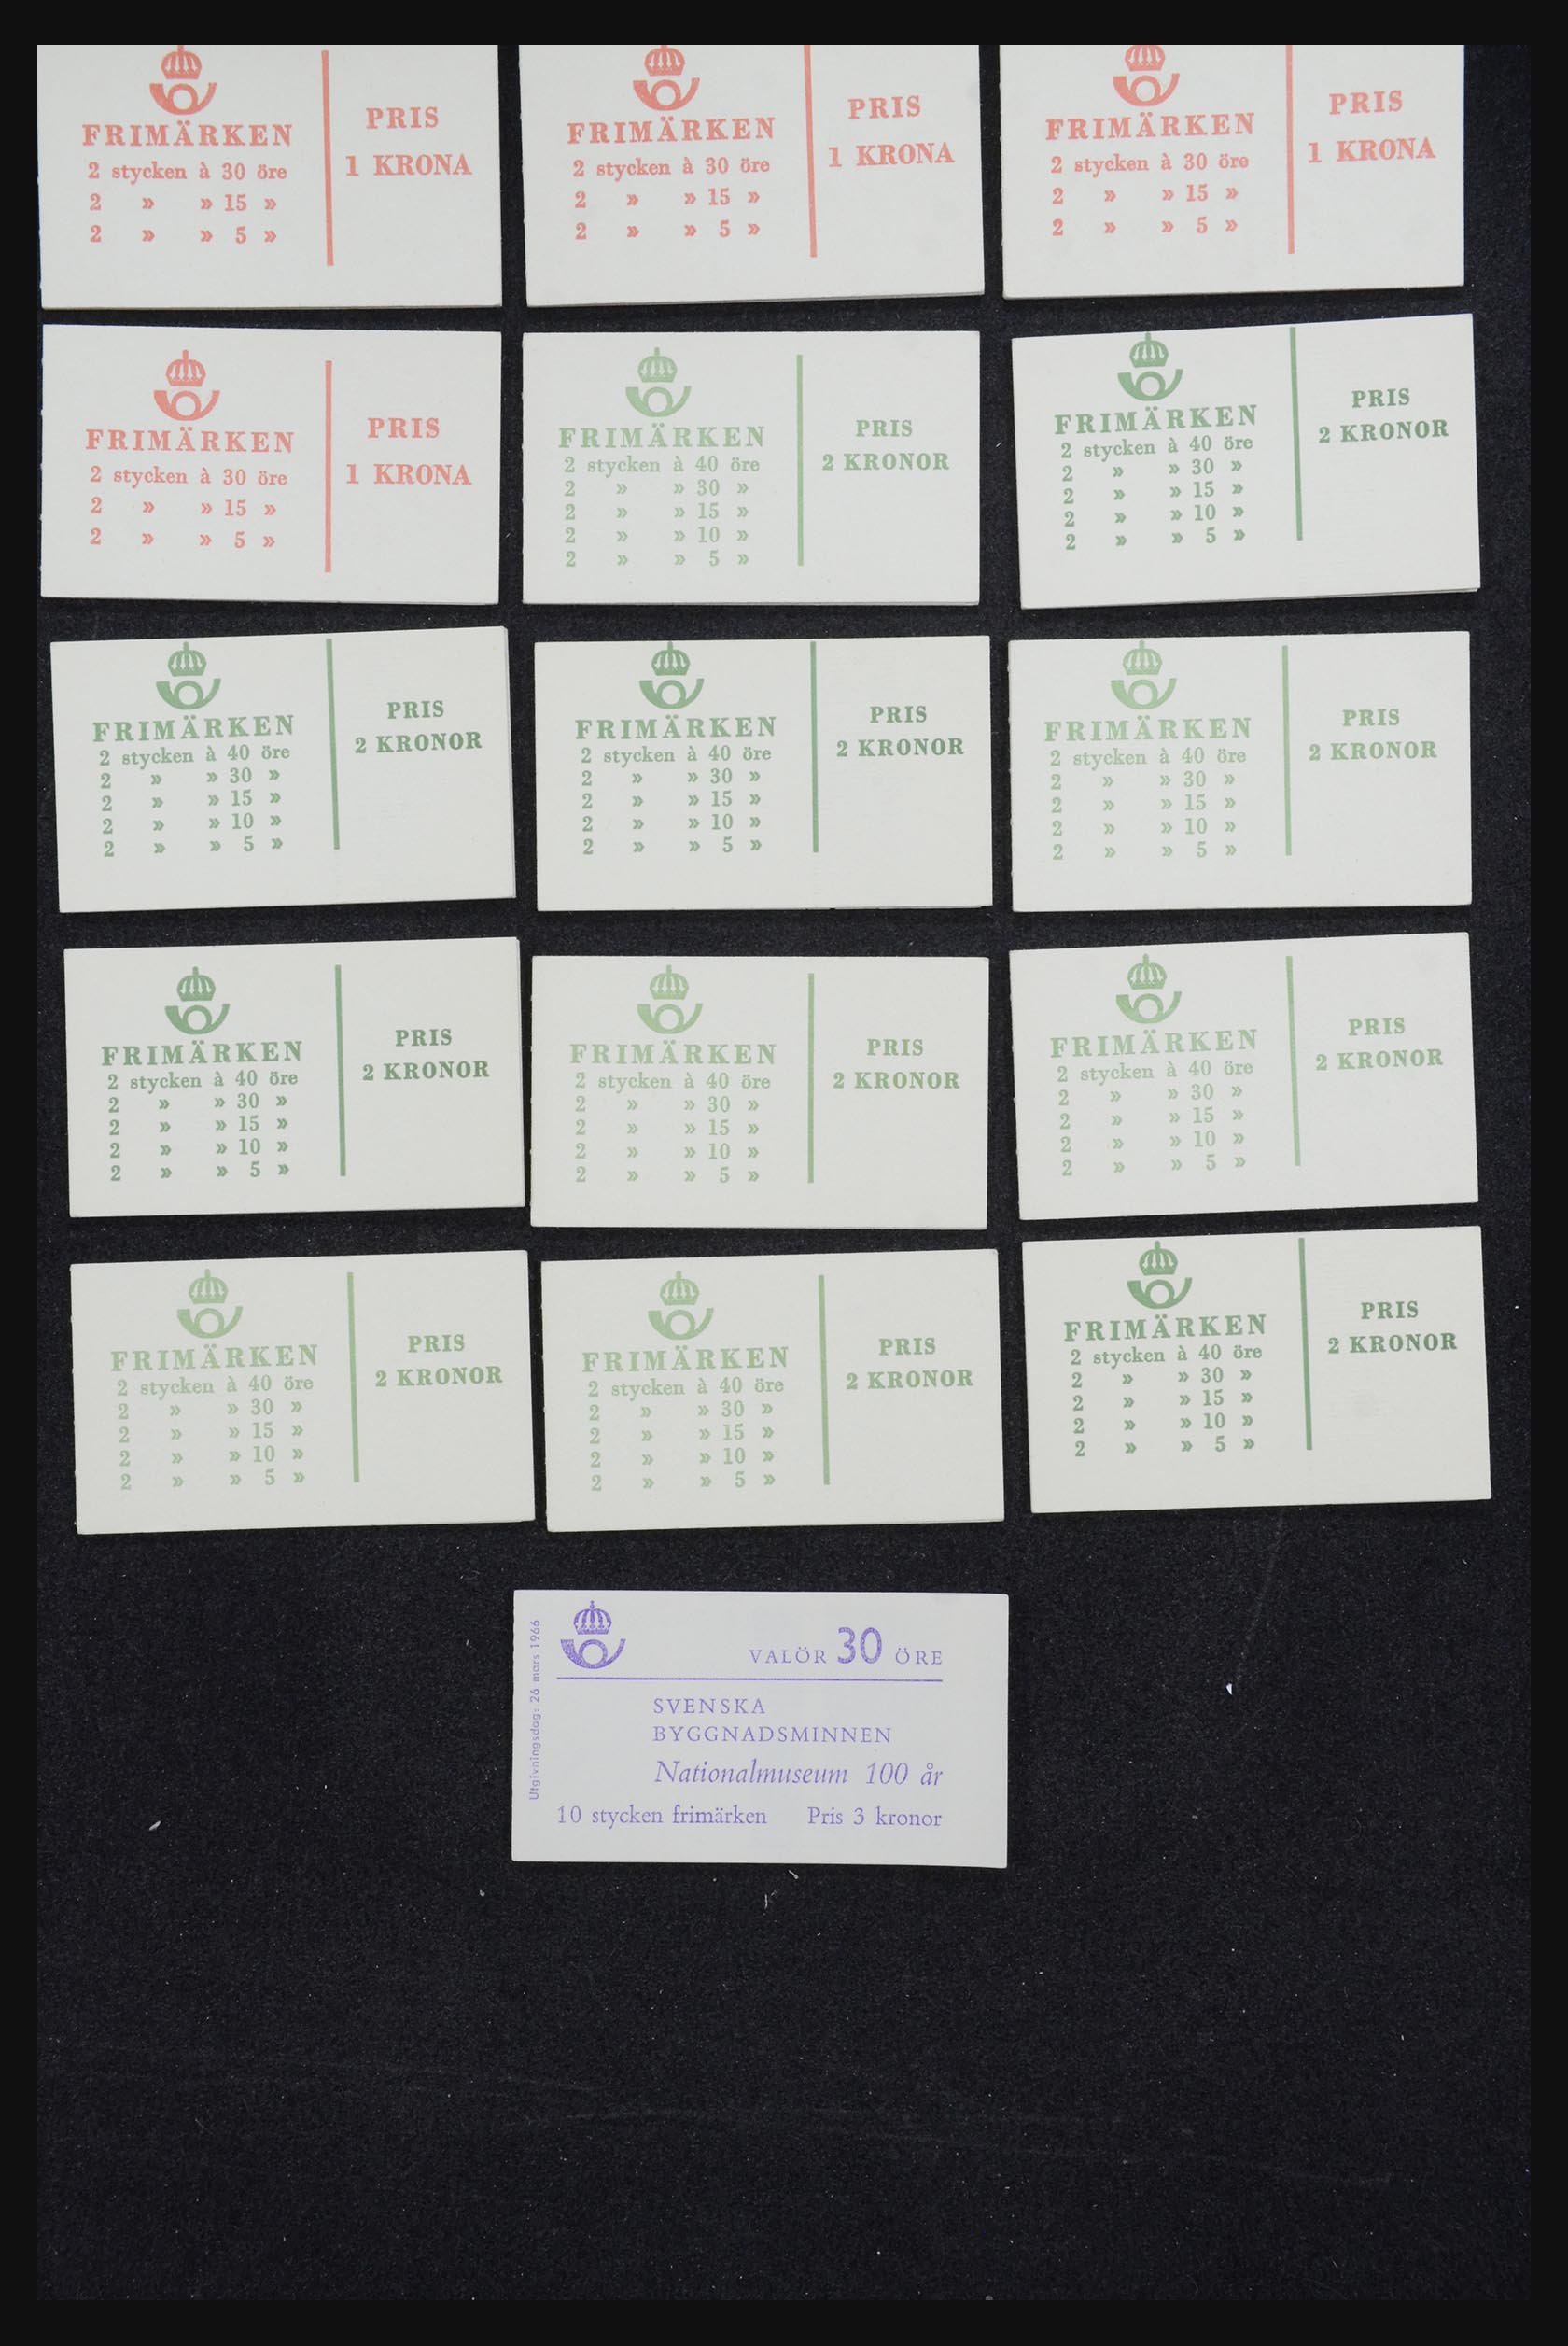 FRIMÄRKEN
2 stycken à 30 öre
2 » » 15 »
2 » » 5 »
PRIS
1 KRONA
FRIMÄRKEN
2 stycken à 30 öre
2 » » 15 »
2 » » 5 »
PRIS
1 KRONA
FRIMÄRKEN
2 stycken à 30 öre
2 » » 15 »
2 » » 5 »
PRIS
1 KRONA
FRIMÄRKEN
2 stycken à 30 öre
2 » » 15 »
2 » » 5 »
PRIS
1 KRONA
FRIMÄRKEN
2 stycken à 40 öre
2 » » 30 »
2 » » 15 »
2 » » 10 »
2 » » 5 »
PRIS
2 KRONOR
FRIMÄRKEN
2 stycken à 40 öre
2 » » 30 »
2 » » 15 »
2 » » 10 »
2 » » 5 »
PRIS
2 KRONOR
FRIMÄRKEN
2 stycken à 40 öre
2 » » 30 »
2 » » 15 »
2 » » 10 »
2 » » 5 »
PRIS
2 KRONOR
FRIMÄRKEN
2 stycken à 40 öre
2 » » 30 »
2 » » 15 »
2 » » 10 »
2 » » 5 »
PRIS
2 KRONOR
FRIMÄRKEN
2 stycken à 40 öre
2 » » 30 »
2 » » 15 »
2 » » 10 »
2 » » 5 »
PRIS
2 KRONOR
FRIMÄRKEN
2 stycken à 40 öre
2 » » 30 »
2 » » 15 »
2 » » 10 »
2 » » 5 »
PRIS
2 KRONOR
FRIMÄRKEN
2 stycken à 40 öre
2 » » 30 »
2 » » 15 »
2 » » 10 »
2 » » 5 »
PRIS
2 KRONOR
FRIMÄRKEN
2 stycken à 40 öre
2 » » 30 »
2 » » 15 »
2 » » 10 »
2 » » 5 »
PRIS
2 KRONOR
FRIMÄRKEN
2 stycken à 40 öre
2 » » 30 »
2 » » 15 »
2 » » 10 »
2 » » 5 »
PRIS
2 KRONOR
FRIMÄRKEN
2 stycken à 40 öre
2 » » 30 »
2 » » 15 »
2 » » 10 »
2 » » 5 »
PRIS
2 KRONOR
FRIMÄRKEN
2 stycken à 40 öre
2 » » 30 »
2 » » 15 »
2 » » 10 »
2 » » 5 »
PRIS
2 KRONOR
Utgivningsdag: 26 mars 1966
VALÖR 30 ÖRE
SVENSKA
BYGGNADSMINNEN
Nationalmuseum 100 år
10 stycken frimärken Pris 3 kronor